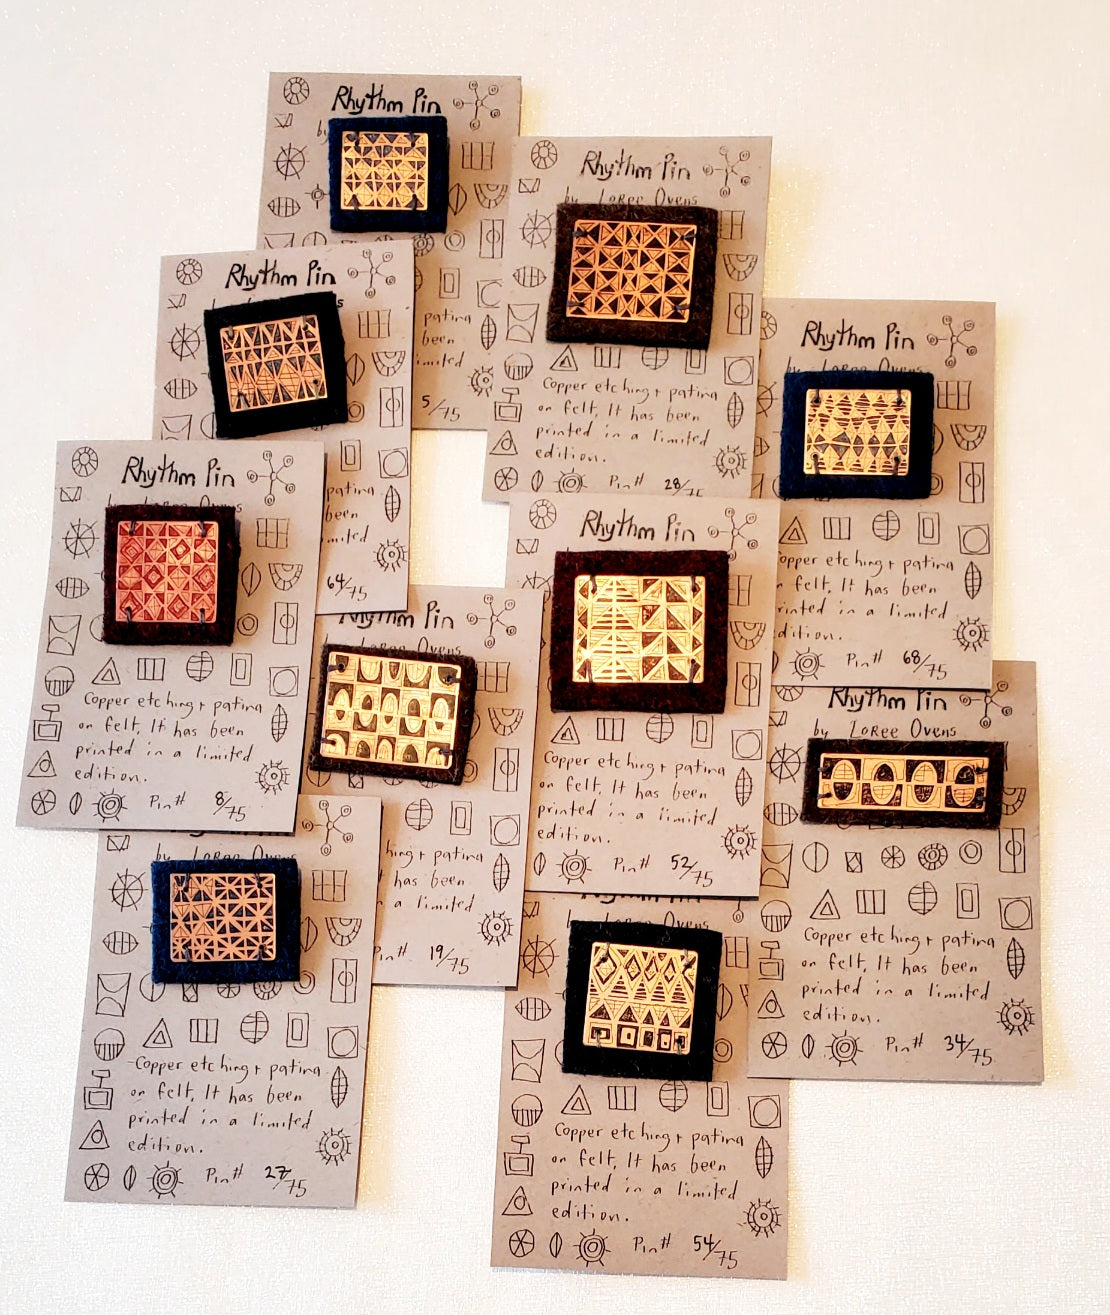 Rhythm Pin
by
patina
been
limited
5/75
Rhythm Pin
by LoRee Ovens
Copper etching + patina
on felt, It has been
printed in a limited
edition.
Pin# 28/75
Rhythm Pin
patina
been
limited
64/75
Rhythm Pin
by LoRee Ovens
opper etching + patina
n felt, It has been
rinted in a limited
dition.
Pin# 68/75
Rhythm Pin
by LoRee Ovens
Copper etching + patina
on felt, It has been
printed in a limited
edition.
Pin# 8/75
Rhythm Pin
LoRee Ovens
hing + patina
has been
a limited
Pin# 19/75
Rhythm Pin
Copper etching + patina
on felt, It has been
printed in a limited
edition.
Pin# 52/75
Rhythm Pin
by LoRee Ovens
Copper etching + patina
on felt, It has been
printed in a limited
edition.
Pin# 34/75
by LoRee Ovens
Copper etching + patina
on felt, It has been
printed in a limited
edition.
Pin# 27/75
Rhythm Pin
by LoRee Ovens
Copper etching + patina
on felt, It has been
printed in a limited
edition.
Pin# 54/75